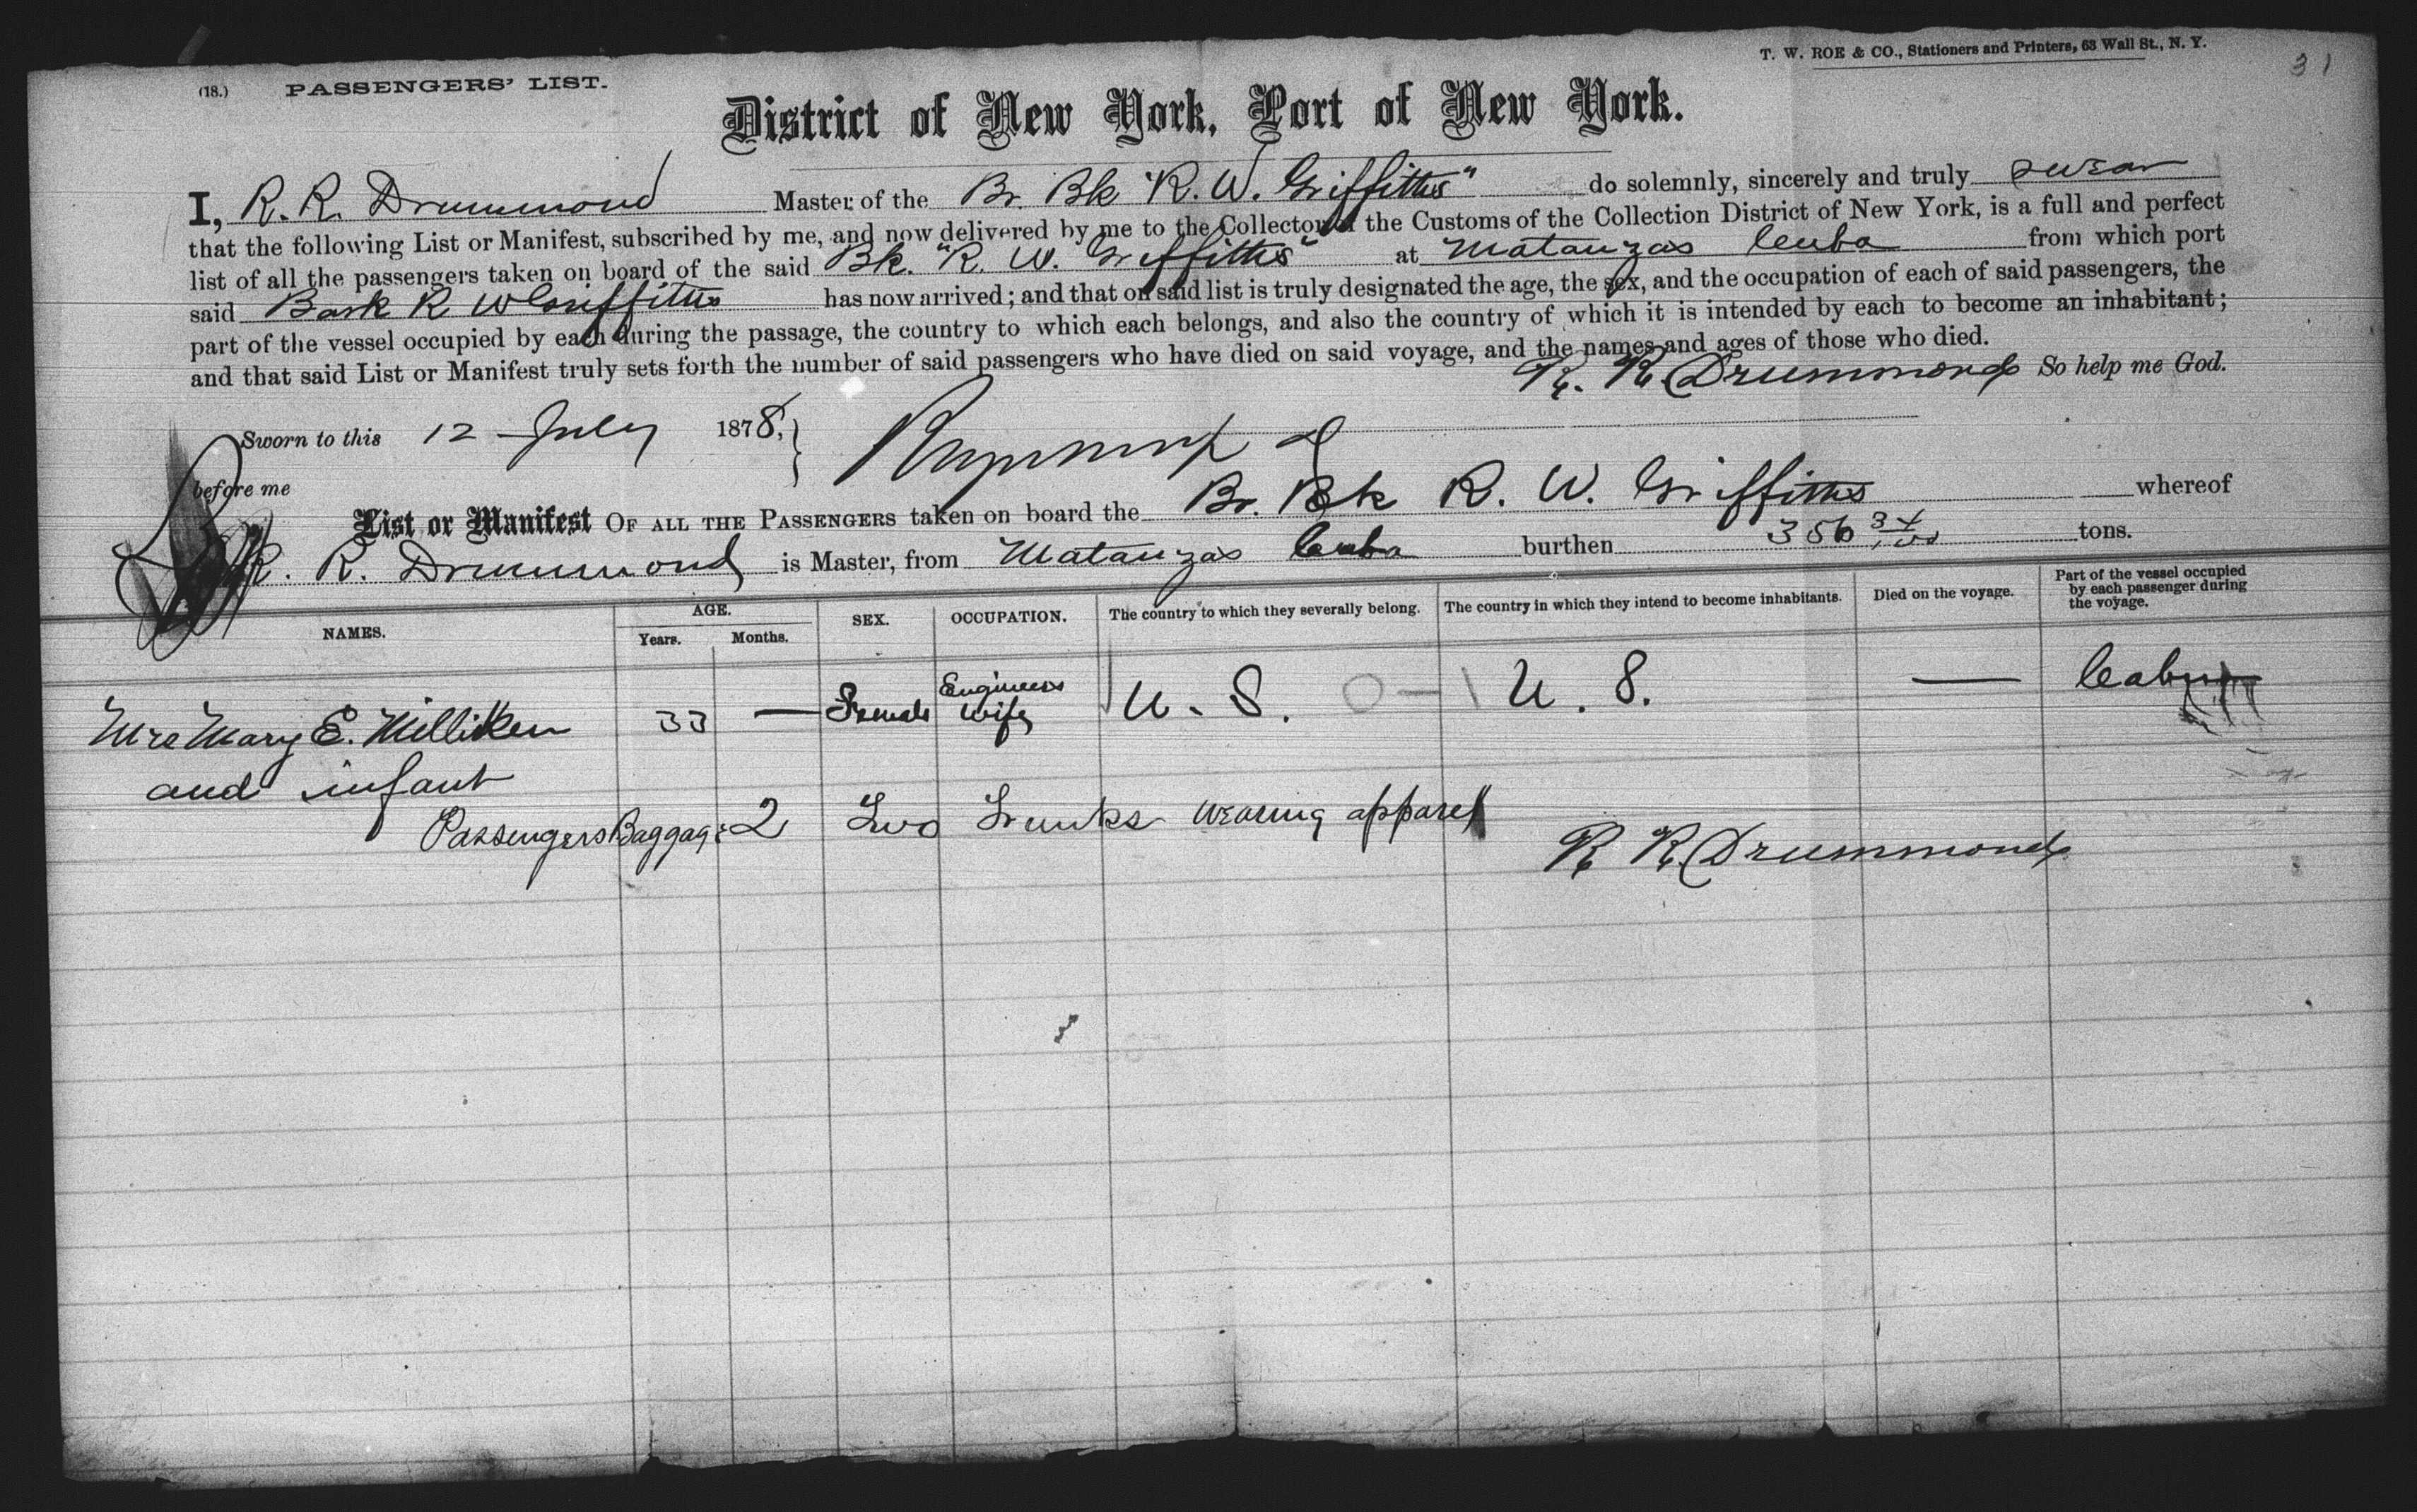 T. W. ROE & CO., Stationers and Printers, 63 Wall St., N. Y.
31
(18.) PASSENGERS' LIST.
District of New York, Port of New York.
I, R. R. Drummond Master of the Br. Bk "R. W. Griffiths" do solemnly, sincerely and truly swear
that the following List or Manifest, subscribed by me, and now delivered by me to the Collector of the Customs of the Collection District of New York, is a full and perfect
list of all the passengers taken on board of the said Bk. "R. W. Griffiths" at Matanzas Cuba from which port
said Bark R W Griffiths has now arrived; and that on said list is truly designated the age, the sex, and the occupation of each of said passengers, the
part of the vessel occupied by each during the passage, the country to which each belongs, and also the country of which it is intended by each to become an inhabitant;
and that said List or Manifest truly sets forth the number of said passengers who have died on said voyage, and the names and ages of those who died.
R. R. Drummond So help me God.
Sworn to this 12 July 1878,
before me
List or Manifest OF ALL THE PASSENGERS taken on board the Br. Bk R. W. Griffiths whereof
R. R. Drummond is Master, from Matanzas Cuba burthen 356 34/100 tons.
NAMES. AGE. Years. Months. SEX. OCCUPATION. The country to which they severally belong. The country in which they intend to become inhabitants. Died on the voyage. Part of the vessel occupied by each passenger during the voyage.
Mrs Mary E. Milliken 33 — Female Engineers wife U. S. 0-1 U. S. — Cabin
and infant
Passengers Baggage 2 Two Trunks wearing apparel
R R Drummond